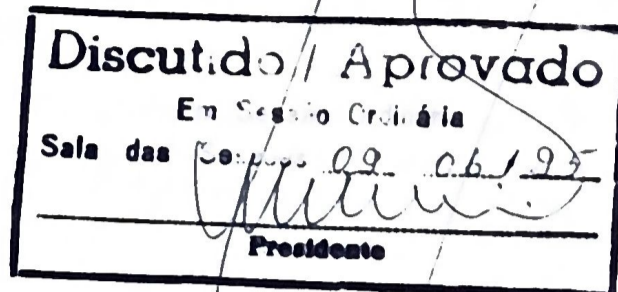 Discutido / Aprovado
Em Sessão Ordinária
Sala das Sessões 09 06 / 95
Presidente